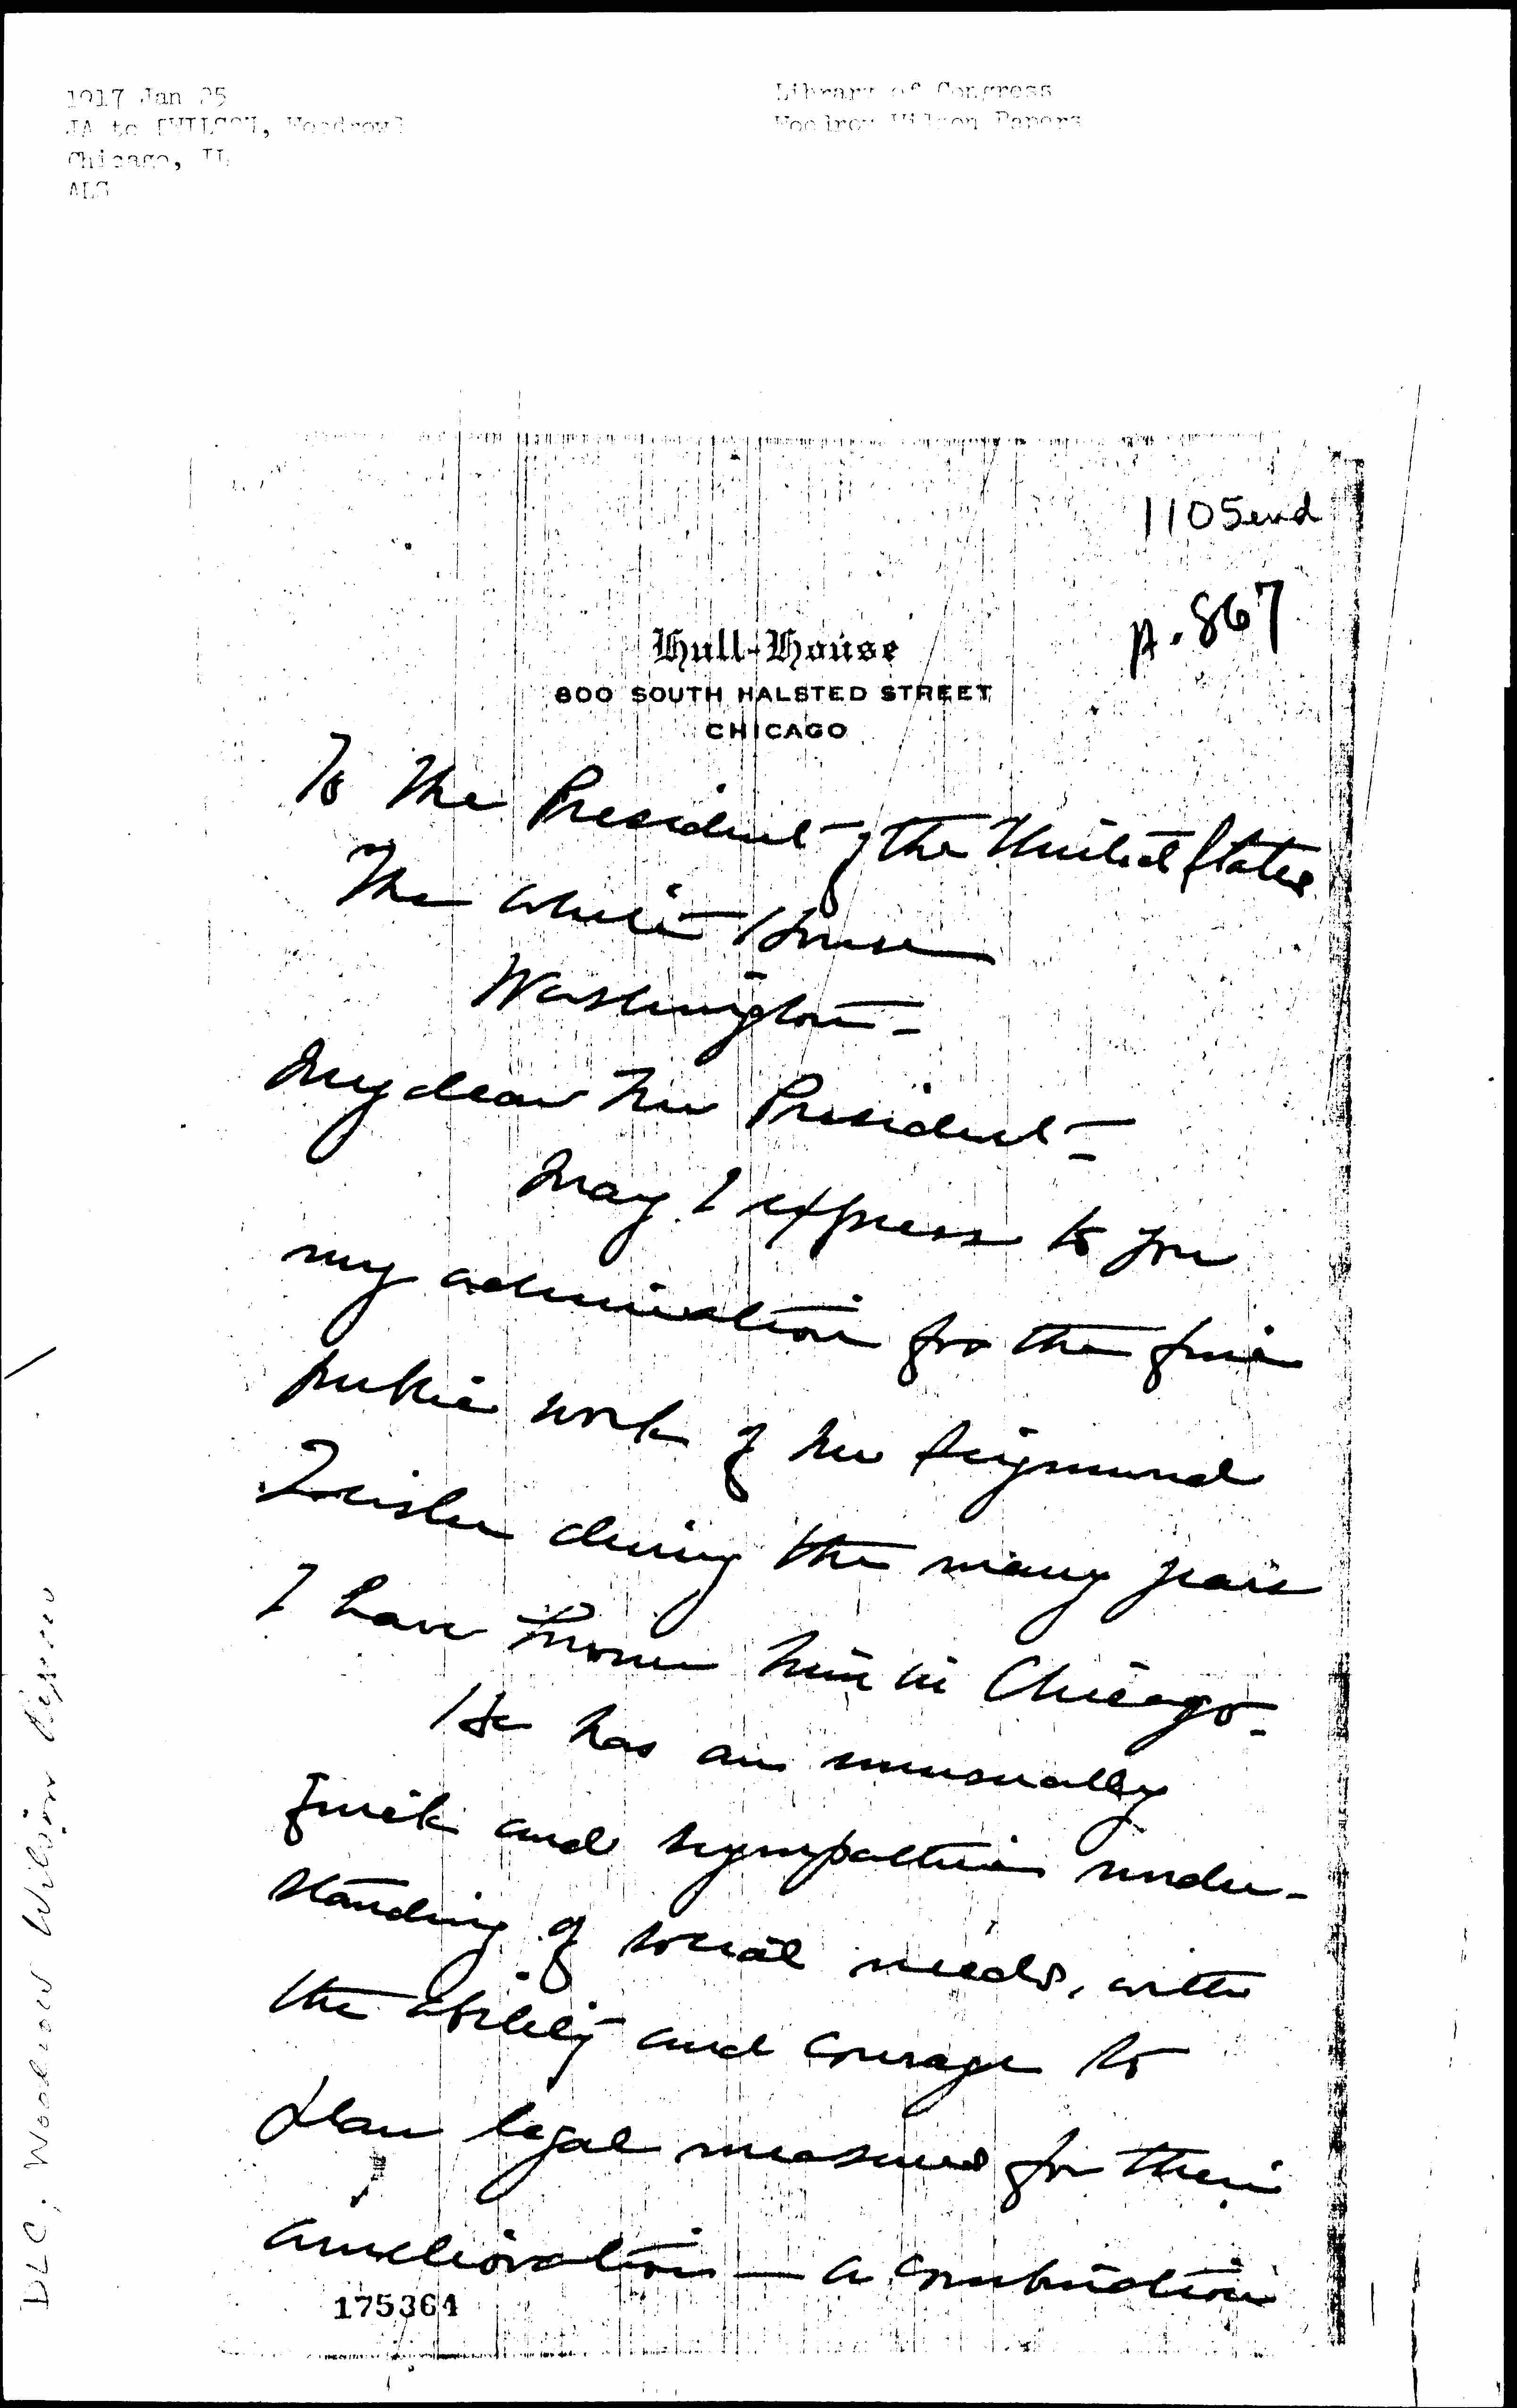 1917 Jan 25
JA to [WILSON, Woodrow]
Chicago, IL
ALS
Library of Congress
Woodrow Wilson Papers
1105end
p. 867
Hull-House
800 SOUTH HALSTED STREET
CHICAGO
To The President of the United States
The White House
Washington -
My dear Mr President -
May I express to you
my admiration for the fine
public work of Mr Sigmund
Zeisler during the many years
I have known him in Chicago -
He has an unusually
quick and sympathetic under-
standing of social needs, with
the ability and courage to
plan legal measures for their
amelioration — a combination
175364
DLC, Woodrow Wilson